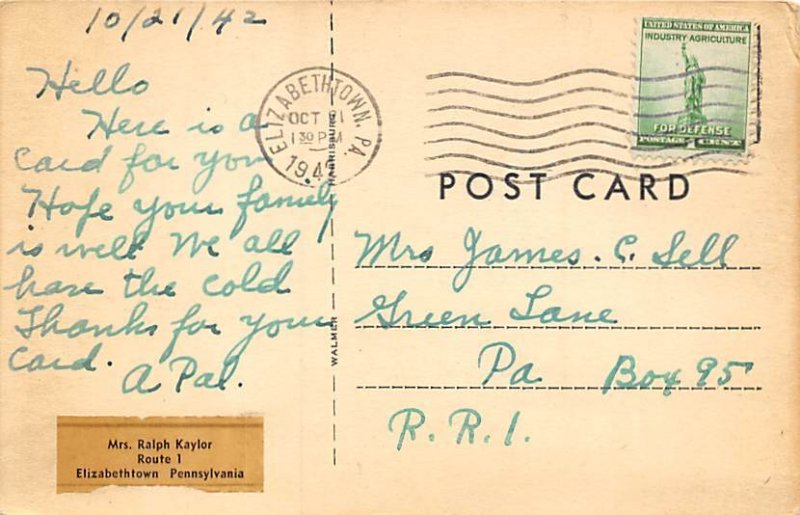 10/21/42
Hello
Here is a
card for you
Hope your family
is well We all
have the cold
Thanks for your
card.
A Pal.
Mrs. Ralph Kaylor
Route 1
Elizabethtown Pennsylvania
ELIZABETHTOWN, PA.
OCT 21
1 30 PM
194
HARRISBURG
WALMER
UNITED STATES OF AMERICA
INDUSTRY AGRICULTURE
FOR DEFENSE
POSTAGE CENT
POST CARD
Mrs James. C. Sell
Green Lane
Pa Box 95
R.R.1.